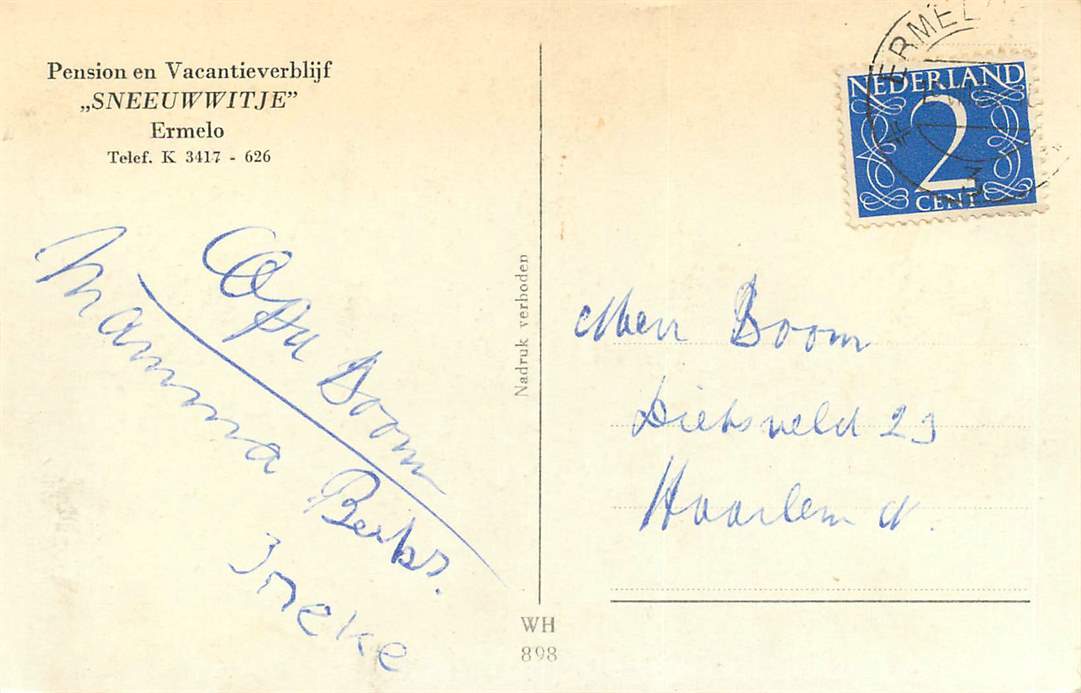 Pension en Vacantieverblijf
„SNEEUWWITJE”
Ermelo
Telef. K 3417 - 626
Opa Boom
Mamma Beeks.
Ineke
Nadruk verboden
WH
898
ERMEL
NEDERLAND
2
CENT
Mevr Boom
Dietsveld 23
Haarlem N.